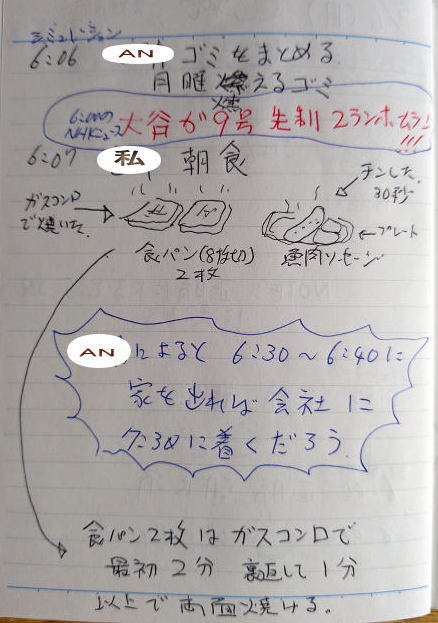 シミュレーション
6:06 AN ゴミをまとめる.
月曜 燃えるゴミ
6:00の
NHKニュース
大谷が9号 先制 2ランホームラン!!!
6:07 私 朝食
チンした.
30秒
ガスコンロ
で焼いた.
プレート
食パン(8枚切)
2枚
魚肉ソーセージ
AN によると 6:30～6:40に
家を出れば 会社 に
7:30に着くだろう.
食パン2枚は ガスコンロで
最初 2分 裏返して 1分
以上で 両面焼ける。